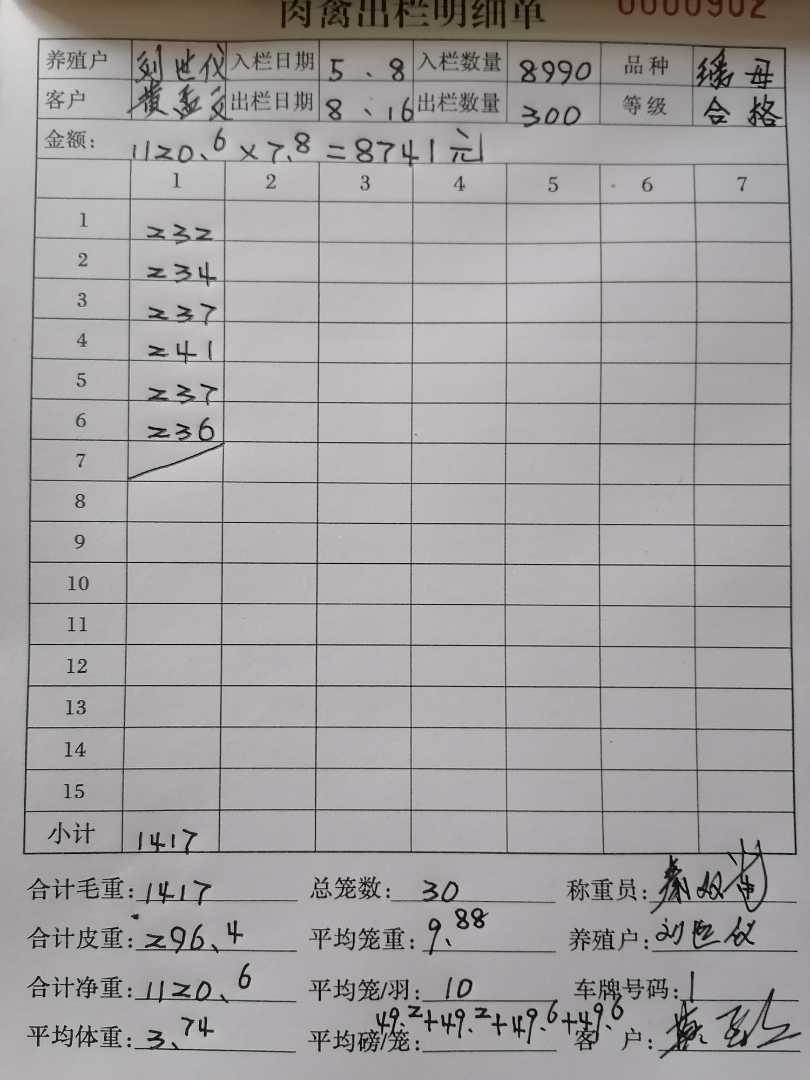 肉禽出栏明细单 0000902
养殖户 刘世仪 入栏日期 5、8 入栏数量 8990 品种 母
客户 黄孟 出栏日期 8、16 出栏数量 300 等级 合格
金额: 1120.6×7.8=8741元
1 2 3 4 5 6 7
1 232
2 234
3 237
4 241
5 237
6 236
7
8
9
10
11
12
13
14
15
小计 1417
合计毛重: 1417 总笼数: 30 称重员: 秦双
合计皮重: 296.4 平均笼重: 9.88 养殖户: 刘世仪
合计净重: 1120.6 平均笼/羽: 10 车牌号码: 1
平均体重: 3.74 平均磅/笼: 49.2+49.2+49.6+49.6 客 户: